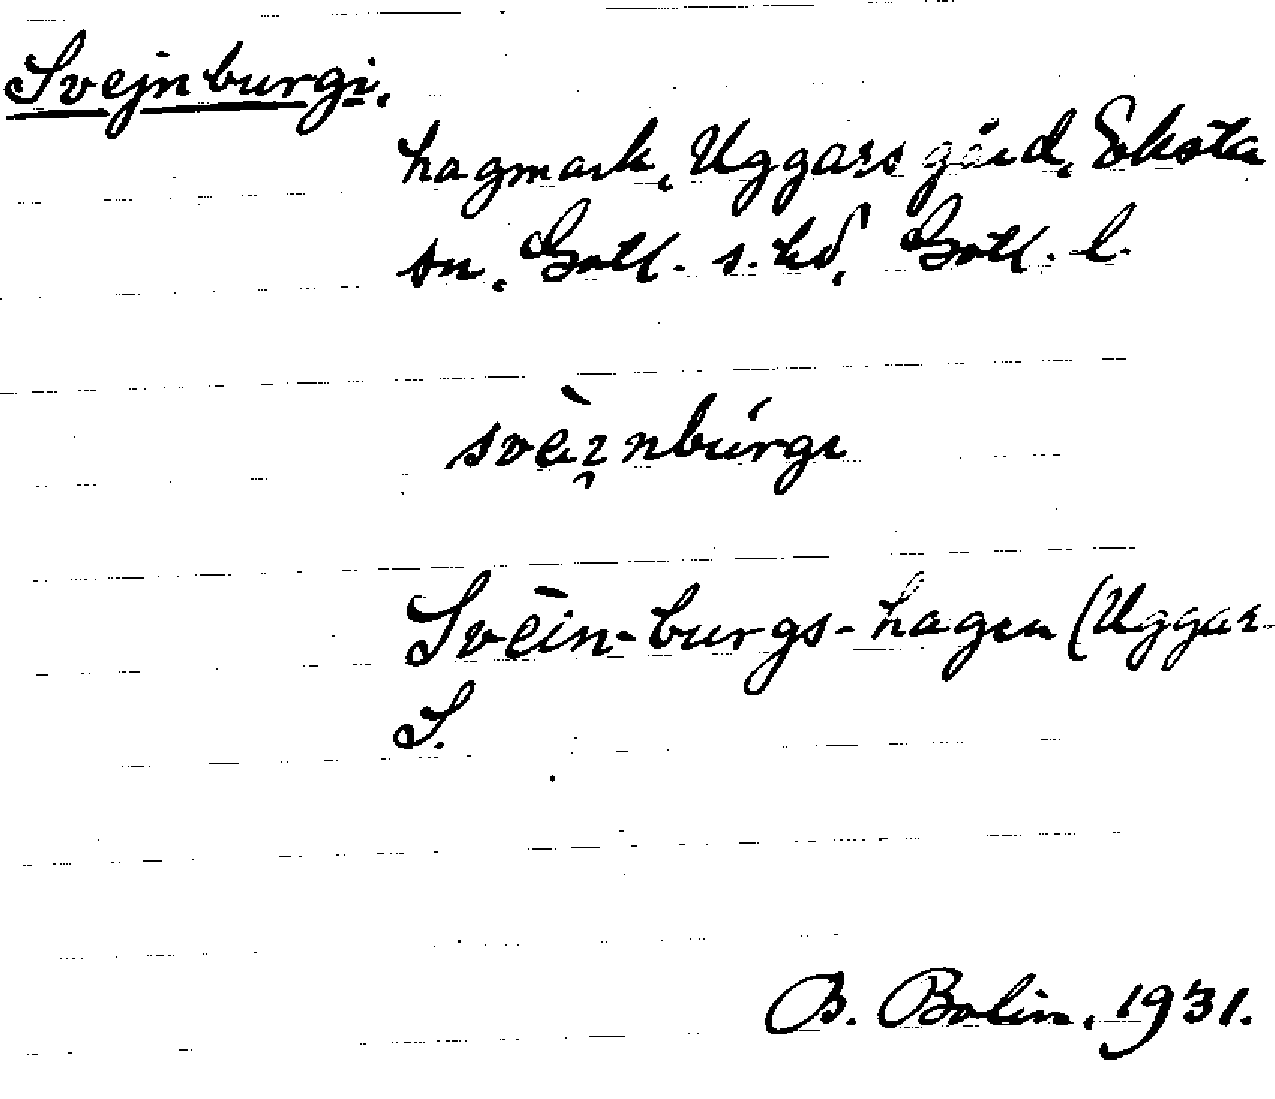 Svejnburgi.
hagmark, Uggarss gård, Eksta
sn, Gotl. s. hd, Gotl. l.
svè̄ɪ̯nbúrgɪ
Svēin-burgs-hagen (Uggar-
S.
B. Bolin, 1931.